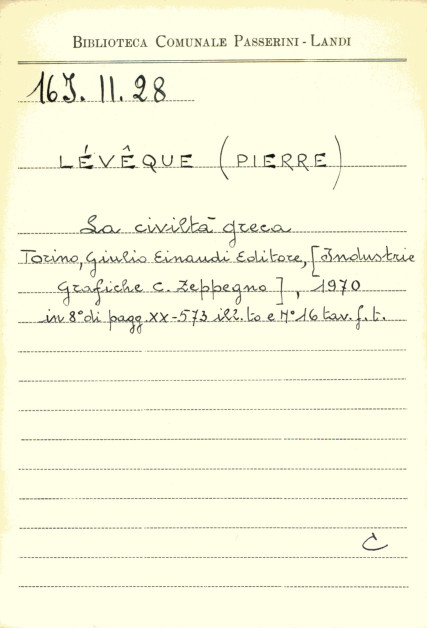 BIBLIOTECA COMUNALE PASSERINI - LANDI
16J. II. 28
LÉVÊQUE (PIERRE)
La civiltà greca
Torino, Giulio Einaudi Editore, [Industrie
Grafiche C. Zeppegno], 1970
in 8° di pagg. XX-573 ill.to e N° 16 tav. f. t.
C